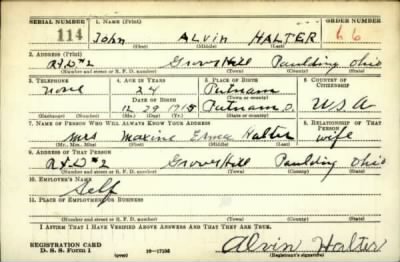 SERIAL NUMBER 1. NAME (Print) ORDER NUMBER
114 John ALVIN HALTER 66
(First) (Middle) (Last)
2. ADDRESS (Print)
R.F.D #2 Grover Hill Paulding Ohio
(Number and street or R. F. D. number) (Town) (County) (State)
3. TELEPHONE 4. AGE IN YEARS 5. PLACE OF BIRTH 6. COUNTRY OF CITIZENSHIP
None 24 Putnam
DATE OF BIRTH (Town or county)
12 29 1915 Putnam O. U.S.A
(Exchange) (No.) (Mo.) (Day) (Yr.) (State or country)
7. NAME OF PERSON WHO WILL ALWAYS KNOW YOUR ADDRESS 8. RELATIONSHIP OF THAT PERSON
Mrs Maxine Erma Halter wife
(Mr., Mrs., Miss) (First) (Middle) (Last)
9. ADDRESS OF THAT PERSON
R.F.D #2 Grover Hill Paulding Ohio
(Number and street or R. F. D. number) (Town) (County) (State)
10. EMPLOYER'S NAME
Self
11. PLACE OF EMPLOYMENT OR BUSINESS
(Number and street or R. F. D. number) (Town) (County) (State)
I AFFIRM THAT I HAVE VERIFIED ABOVE ANSWERS AND THAT THEY ARE TRUE.
REGISTRATION CARD
D. S. S. Form 1 (over) 16—17105 Alvin Halter
(Registrant's signature)